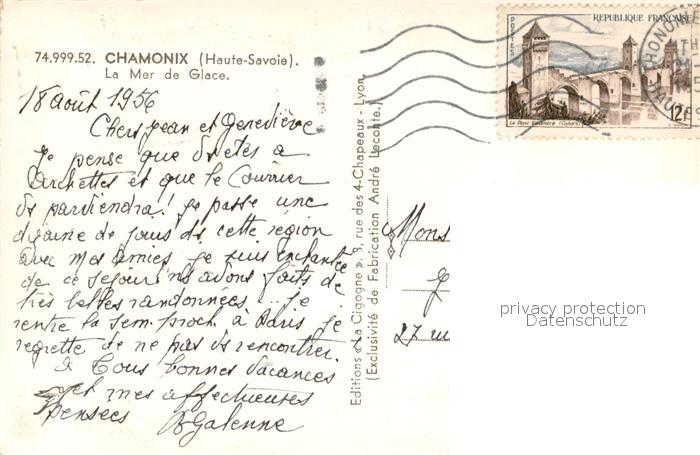 74.999.52. CHAMONIX (Haute-Savoie).
La Mer de Glace.
18 août 1956
Chers Jean et Geneviève
Je pense que vs etes a
Archettes et que le Courrier
vs parviendra! Je passe une
dizaine de jours ds cette région
avec mes amies je suis enchantée
de ce sejour ns avons faits de
très belles randonnées.. je
rentre la sem. proch. à Paris je
regrette de ne pas vs rencontrer.
à Tous bonnes vacances
et mes affectueuses
pensées
Editions « La Cigogne ». 3, rue des 4-Chapeaux - Lyon.
(Exclusivité de Fabrication André Leconte.)
POSTES
REPUBLIQUE FRANÇAISE
Le Pont Valentré (Cahors)
12F
Mons
27 rue
privacy protection
Datenschutz